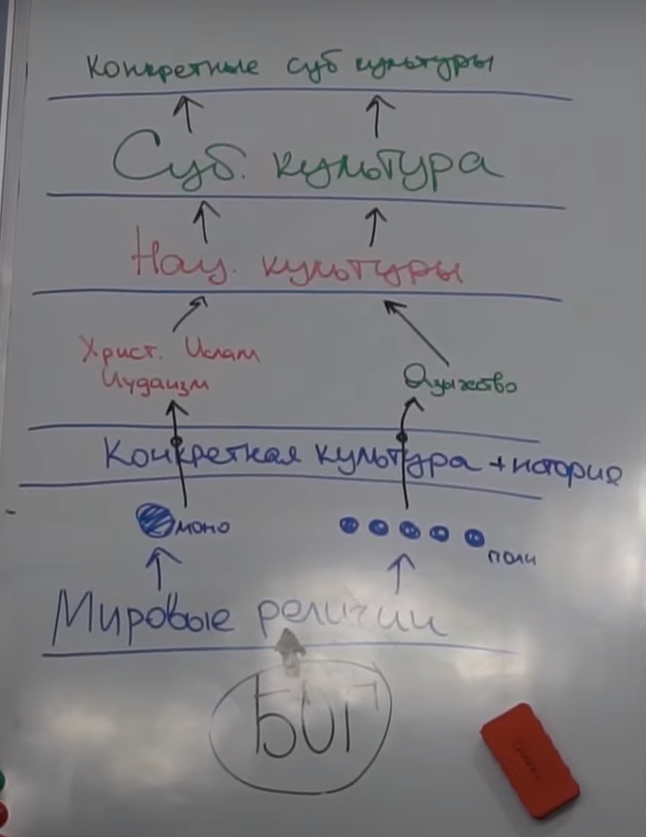 Конкретные суб культуры
Суб. культура
Нац. культуры
Христ. Ислам
Иудаизм
Язычество
Конкретная культура + история
моно
поли
Мировые религии
БОГ